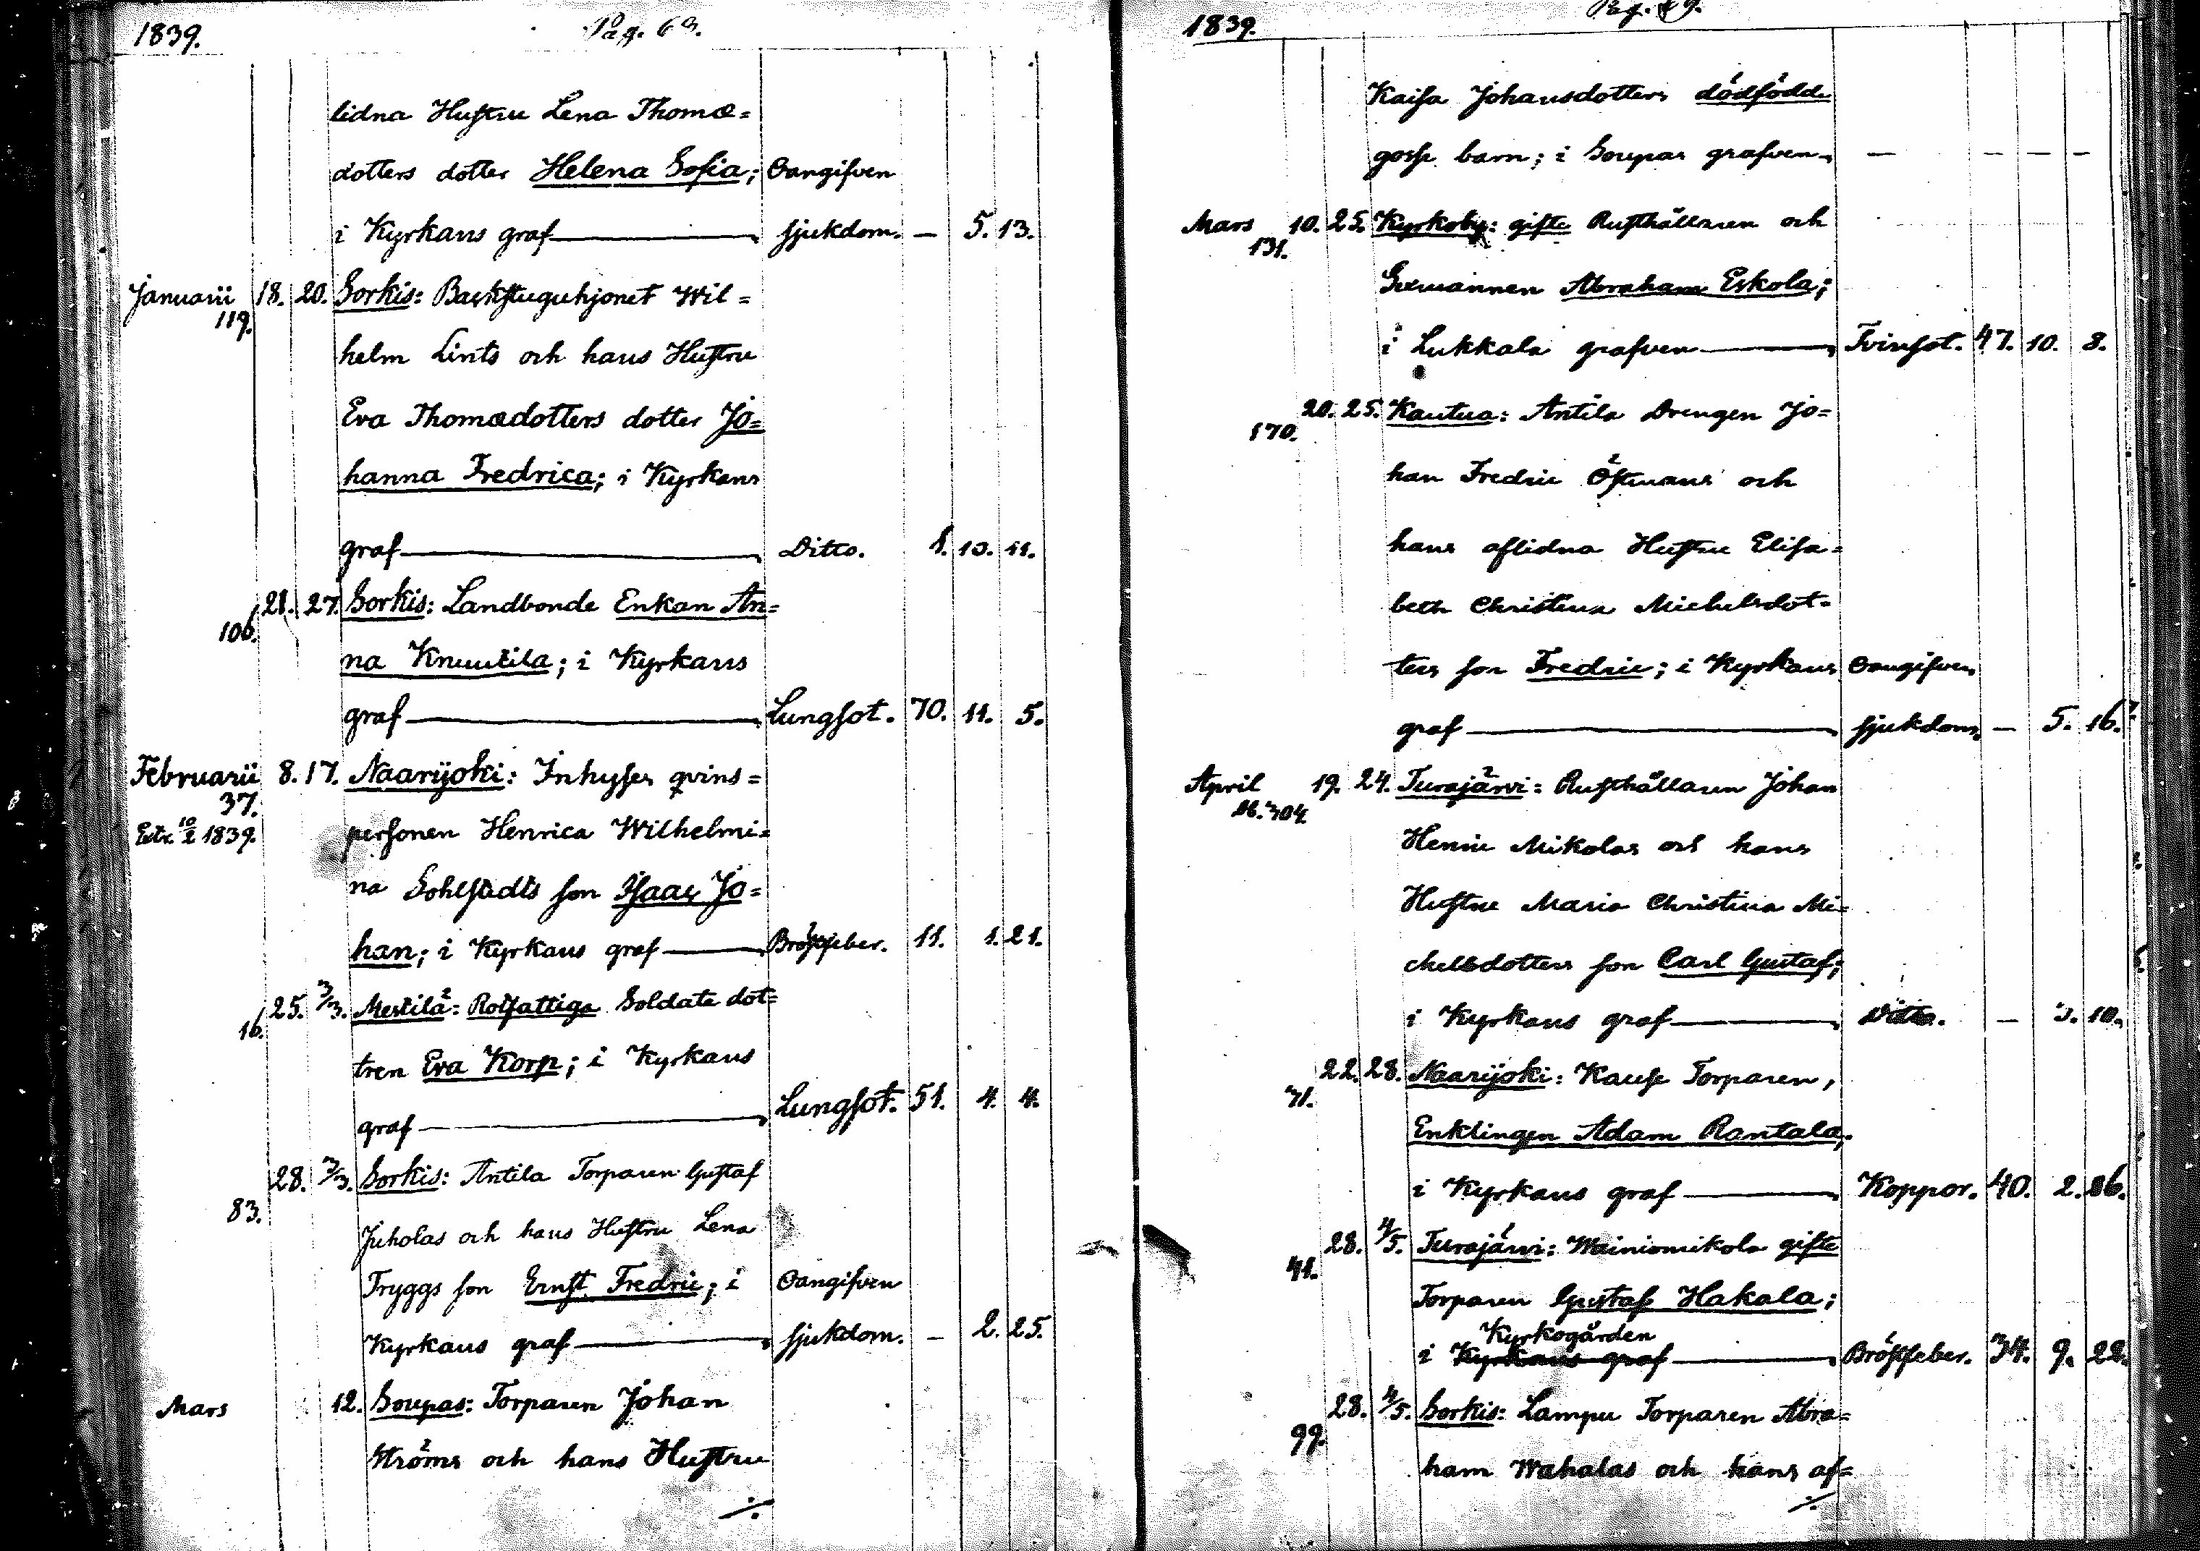 1839.
Pag. 69.
lidna Hustru Lena Thomæ=
dotters dotter Helena Sofia; Oangifven
i Kyrkans graf — sjukdom. — 5. 13.
Januarii 18. 20. Sorkis: Backstuguhjonet Wil=
119.
helm Lints och hans Hustru
Eva Thomædotters dotter Jo=
hanna Fredrica; i Kyrkans
graf — Ditto. 1. 10. 11.
21. 27. Sorkis: Landbonde Enkan An=
106.
na Knuutila; i Kyrkans
graf — Lungsot. 70. 11. 5.
Februarii 8. 17. Naarijoki: Inhyses qvins=
37.
Extr. 10/2 1839. personen Henrica Wilhelmi=
na Sohlstadts son Isaac Jo=
han; i Kyrkans graf — Bröstfeber. 11. 1. 21.
25. 3/3. Mestilä: Rotfattiga Soldate dot=
16.
tren Eva Korp; i Kyrkans
graf — Lungsot. 51. 4. 4.
28. 3/3. Sorkis: Antila Torparen Gustaf
83.
Juholas och hans Hustru Lena
Tryggs son Ernst Fredric; i Oangifven
Kyrkans graf — sjukdom. — 2. 25.
Mars 12. Soupas: Torparen Johan
Ströms och hans Hustru
./.
1839.
Kaisa Johansdotters dödfödde
gosse barn; i Soupas grafven — — — —
Mars 10. 25. Kyrkoby: gifte Rusthållaren och
131.
Sexmannen Abraham Eskola;
i Lukkala grafven — Tvinsot. 47. 10. 8.
20. 25. Kautua: Antila Drengen Jo=
170.
han Fredric Östmans och
hans aflidna Hustru Elisa=
beth Christina Michelsdot=
ters son Fredric; i Kyrkans Oangifven
graf — sjukdom. — 5. 16.
April 19. 24. Turajärvi: Rusthållaren Johan
304.
Henric Mikolas och hans
Hustru Maria Christina Mi=
chelsdotters son Carl Gustaf;
i Kyrkans graf — Ditto. — 3. 10.
22. 28. Naarijoki: Kause Torparen,
71.
Enklingen Adam Rantala,
i Kyrkans graf — Koppor. 40. 2. 26.
28. 4/5. Turajärvi: Wainiomikola gifte
41.
Torparen Gustaf Hakala;
Kyrkogården
i Kyrkans graf — Bröstfeber. 34. 9. 22.
28. 4/5. Sorkis: Lampu Torparen Abra=
99.
ham Wahalas och hans af=
./.